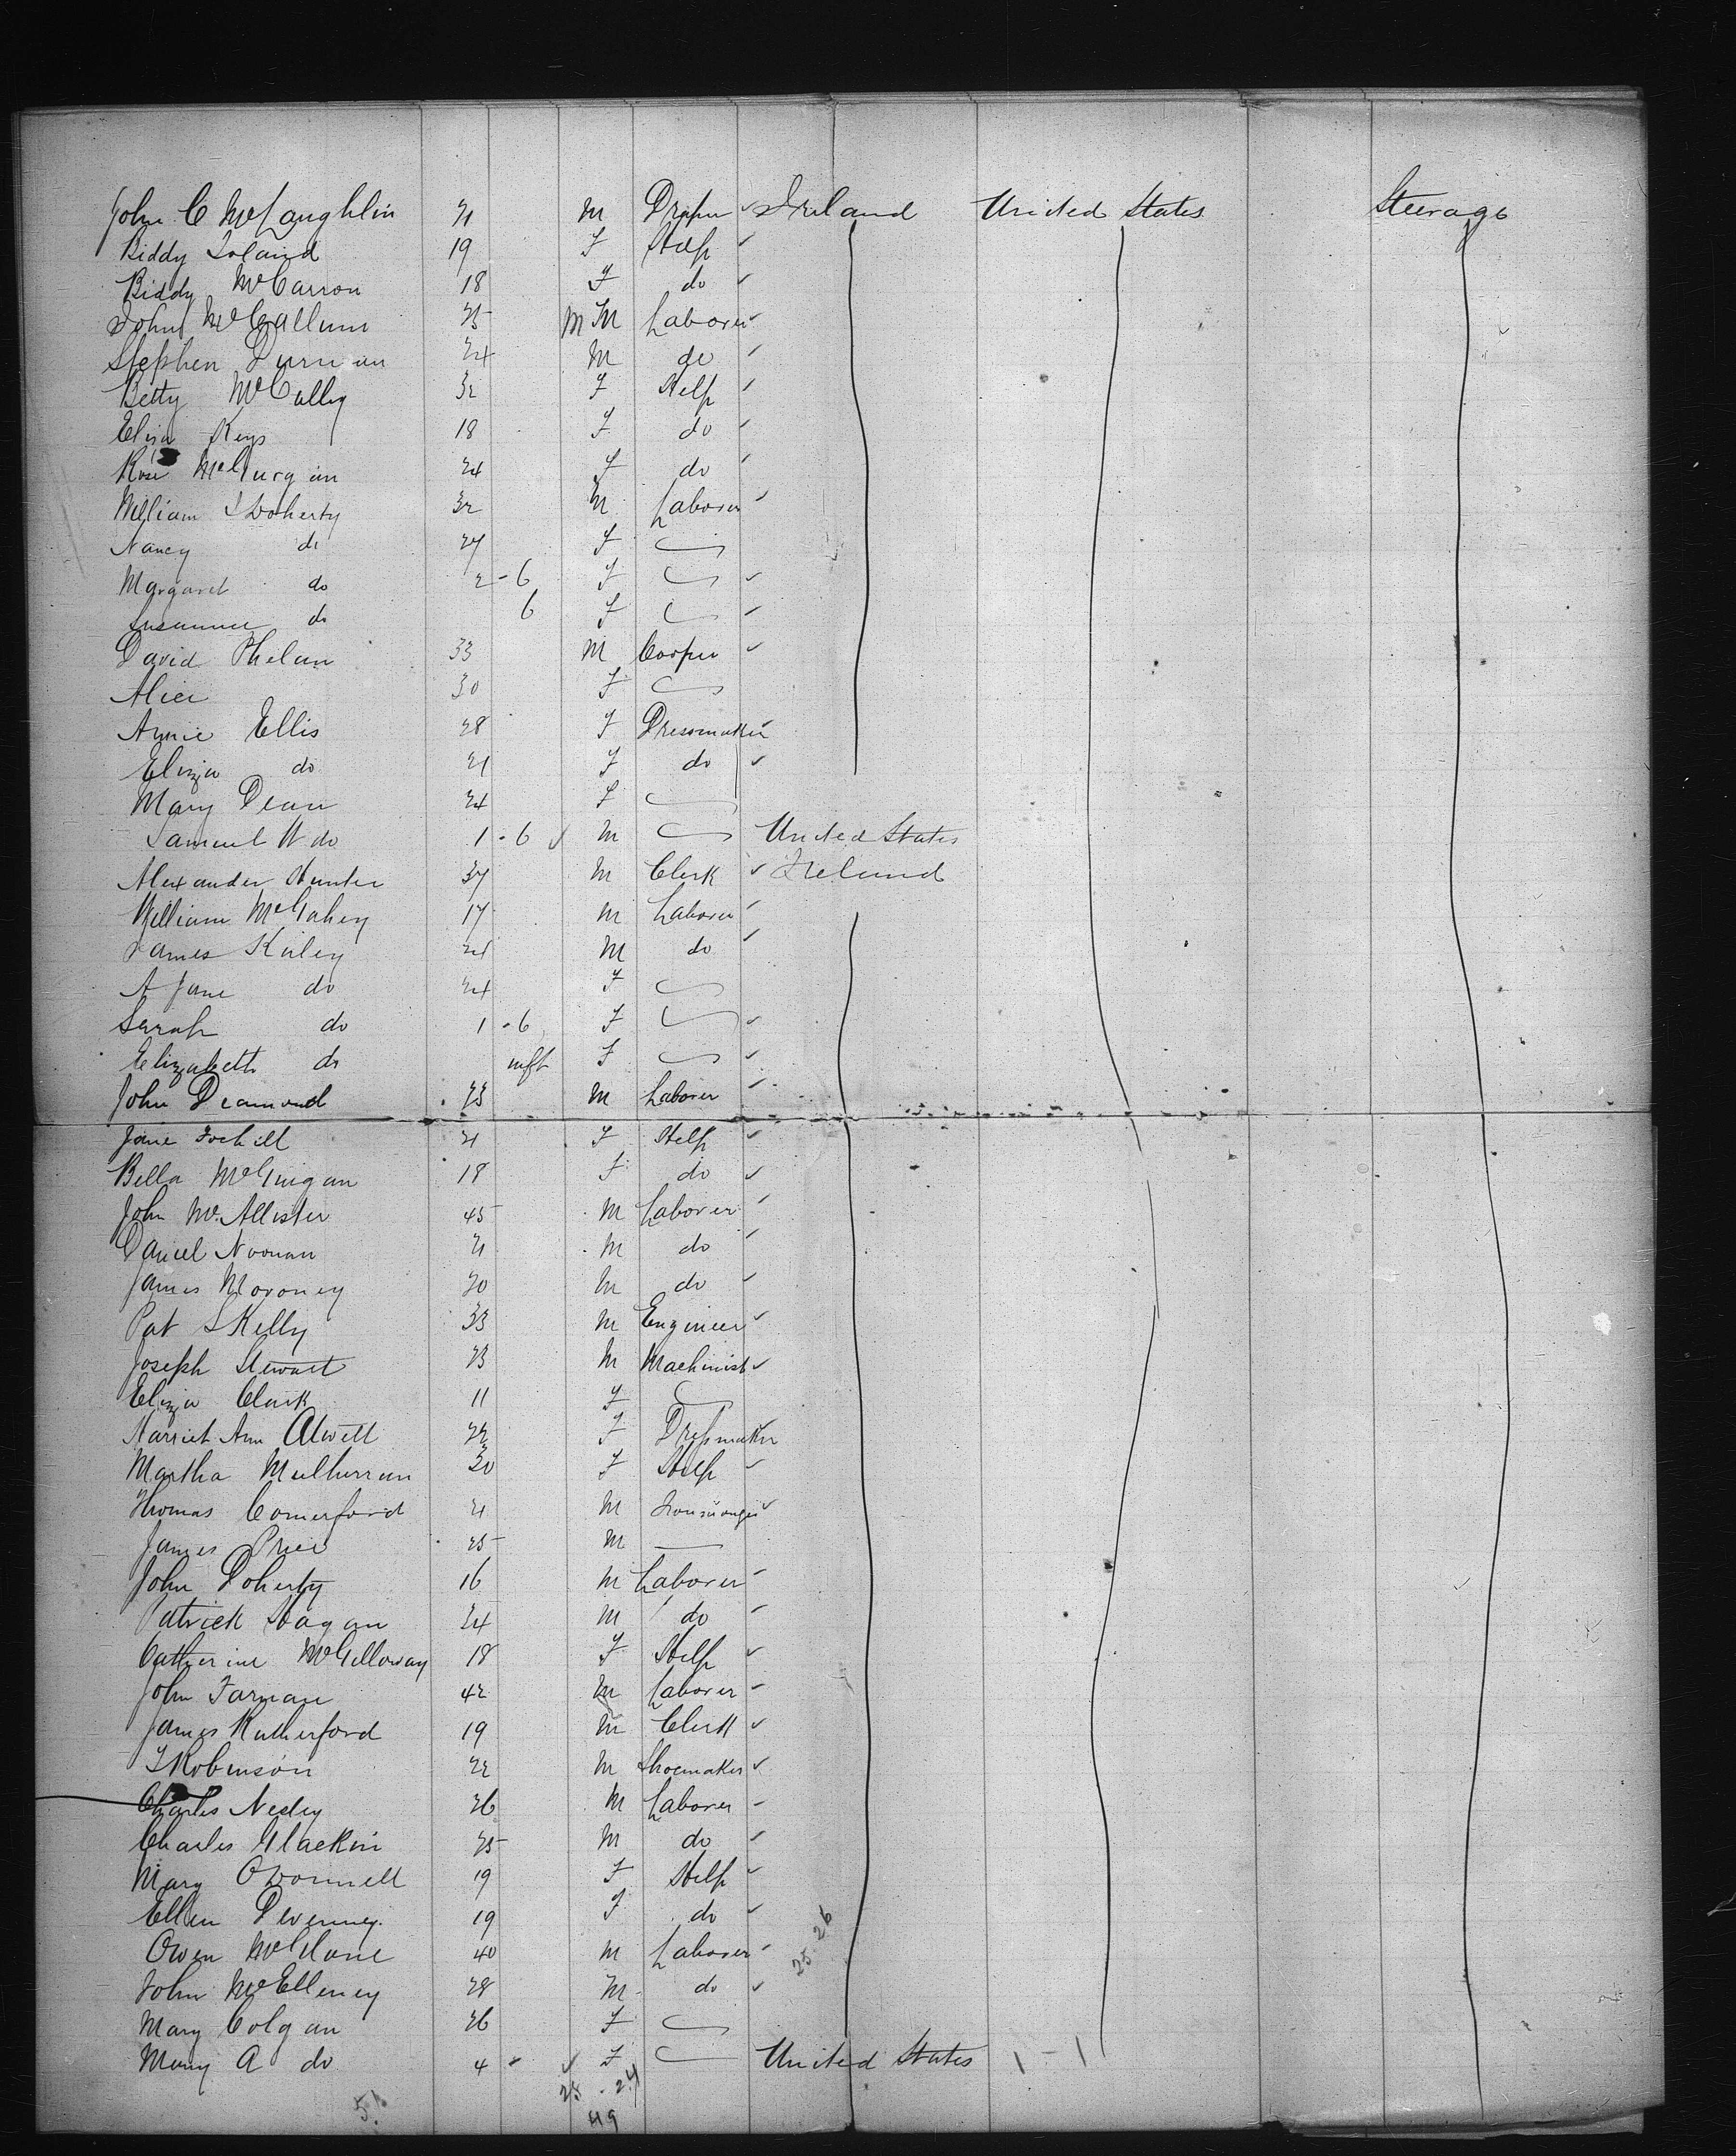 John C McLaughlin 21 M Draper Ireland United States Steerage
Biddy Toland 19 F Help
Biddy McCarron 18 F do
John McCallum 25 M M Laborer
Stephen Durnian 24 M do
Betty McCulley 32 F Help
Eliza Keys 18 F do
Rose McGurgan 24 F do
William J Doherty 32 M Laborer
Nancy do 27 F
Margaret do 2 - 6 F
Susannee do 6 F
David Phelan 33 M Cooper
Alice 30 F
Annie Ellis 28 F Dressmaker
Eliza do 21 F do
Mary Dean 24 F
Samuel W do 1 - 6 M United States
Alexander Hunter 37 M Clerk Ireland
William McGahey 17 M Laborer
James Kuley 24 M do
A Jane do 24 F
Sarah do 1 - 6 F
Elizabeth do inft F
John Diamond 23 M Laborer
Jane 21 F Help
Bella McGuigan 18 F do
John McAllister 45 M Laborer
Daniel Noonan 21 M do
James Moroney 20 M do
Pat Skelly 33 M Engineer
Joseph Stewart 23 M Machinist
Eliza Clark 11 F
Harriet Ann Atwell 22 F Dressmaker
Martha Mulherran 30 F Help
Thomas Comerford 21 M
James Price 25 M
John Doherty 16 M Laborer
Patrick Hagan 24 M do
Catherine McGilloway 18 F Help
John Farnan 42 M Laborer
James Rutherford 19 M Clerk
T Robinson 22 M Shoemaker
Charles Nedey 26 M Laborer
Charles Glackin 25 M do
Mary O'Donnell 19 F Help
Ellen Devenney 19 F do
Owen McGlone 40 M Laborer
25.26
John McElleney 28 M do
Mary Colgan 26 F
Mary A do 4 F United States 1 - 1
25 . 24
51 49